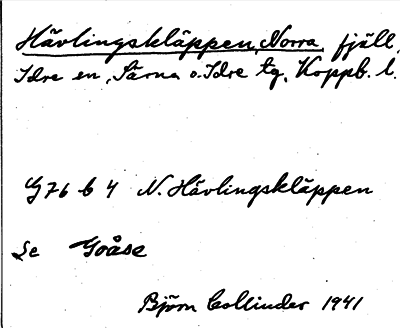 Hävlingskläppen, Norra, fjäll,
Idre sn, Särna o. Idre tg, Koppb. l.
G76 b 4 N. Hävlingskläppen
Se Goåse
Björn Collinder 1941